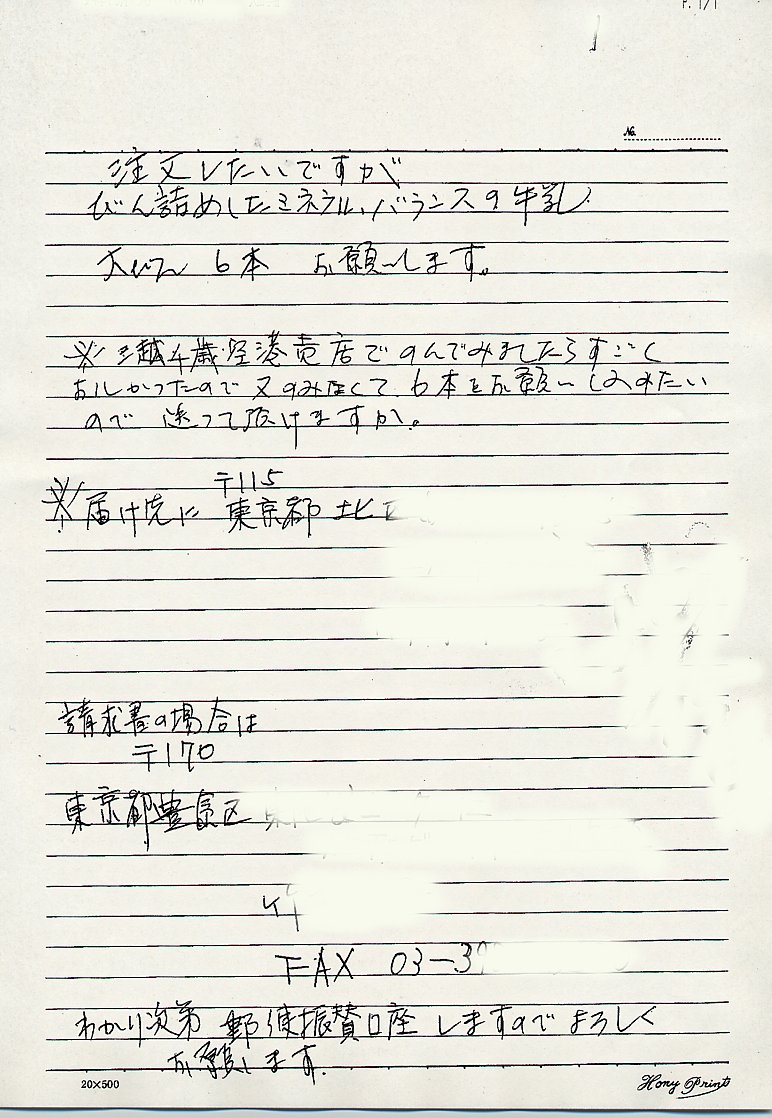 P. 1/1
No.
注文したいですが
びん詰めしたミネラル、バランスの牛乳
大びん 6本 お願いします。
※ 三越千歳空港売店でのんでみましたらすごく
おいしかったので 又のみたくて 6本をお願い
ので 送って頂けますか。
〒115
※ 届け先に 東京都 北
請求書の場合は
〒170
東京都豊島区
FAX 03-3
わかり次第 郵便振替口座 しますので よろしく
お願いします.
20×500
Hony Print